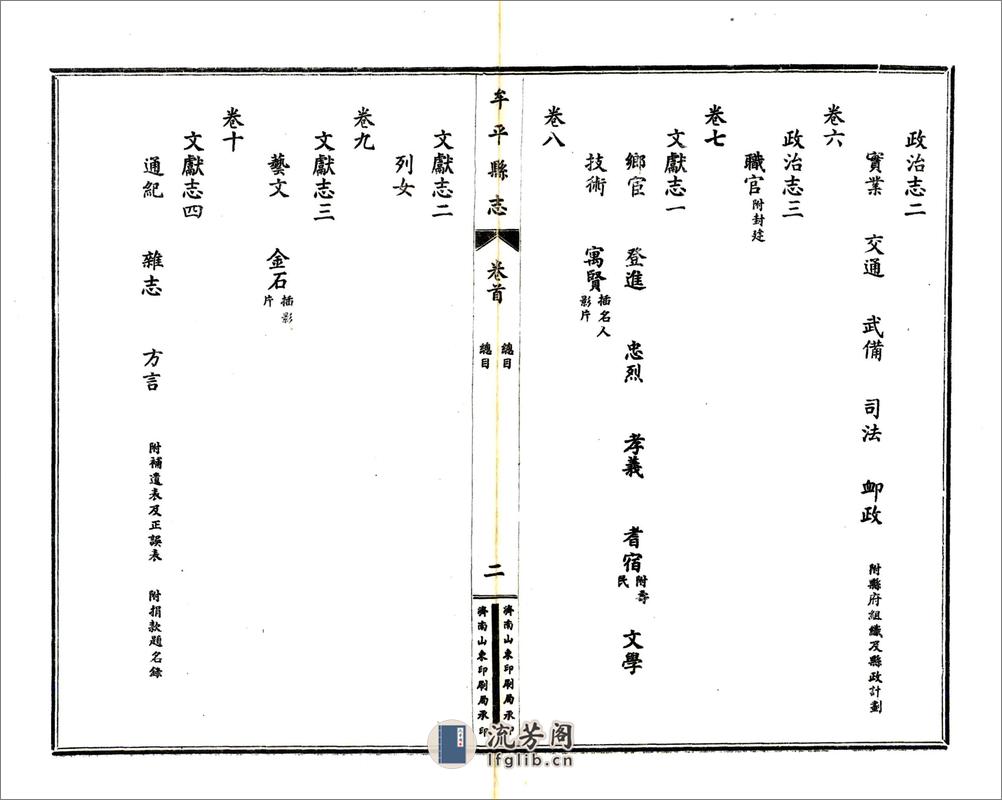 政治志二
實業　交通　武備　司法　卹政　附縣府組織及縣政計劃
卷六
政治志三
職官附封建
卷七
文獻志一
鄉宦　登進　忠烈　孝義　耆宿附壽民　文學
技術　寓賢插名人影片
卷八
牟平縣志　卷首　總目　總目　二　濟南山東印刷局承印　濟南山東印刷局承印
文獻志二
列女
卷九
文獻志三
藝文　金石插影片
卷十
文獻志四
通紀　雜志　方言　附補遺表及正誤表　附捐款題名錄
流芳阁
lfglib.cn